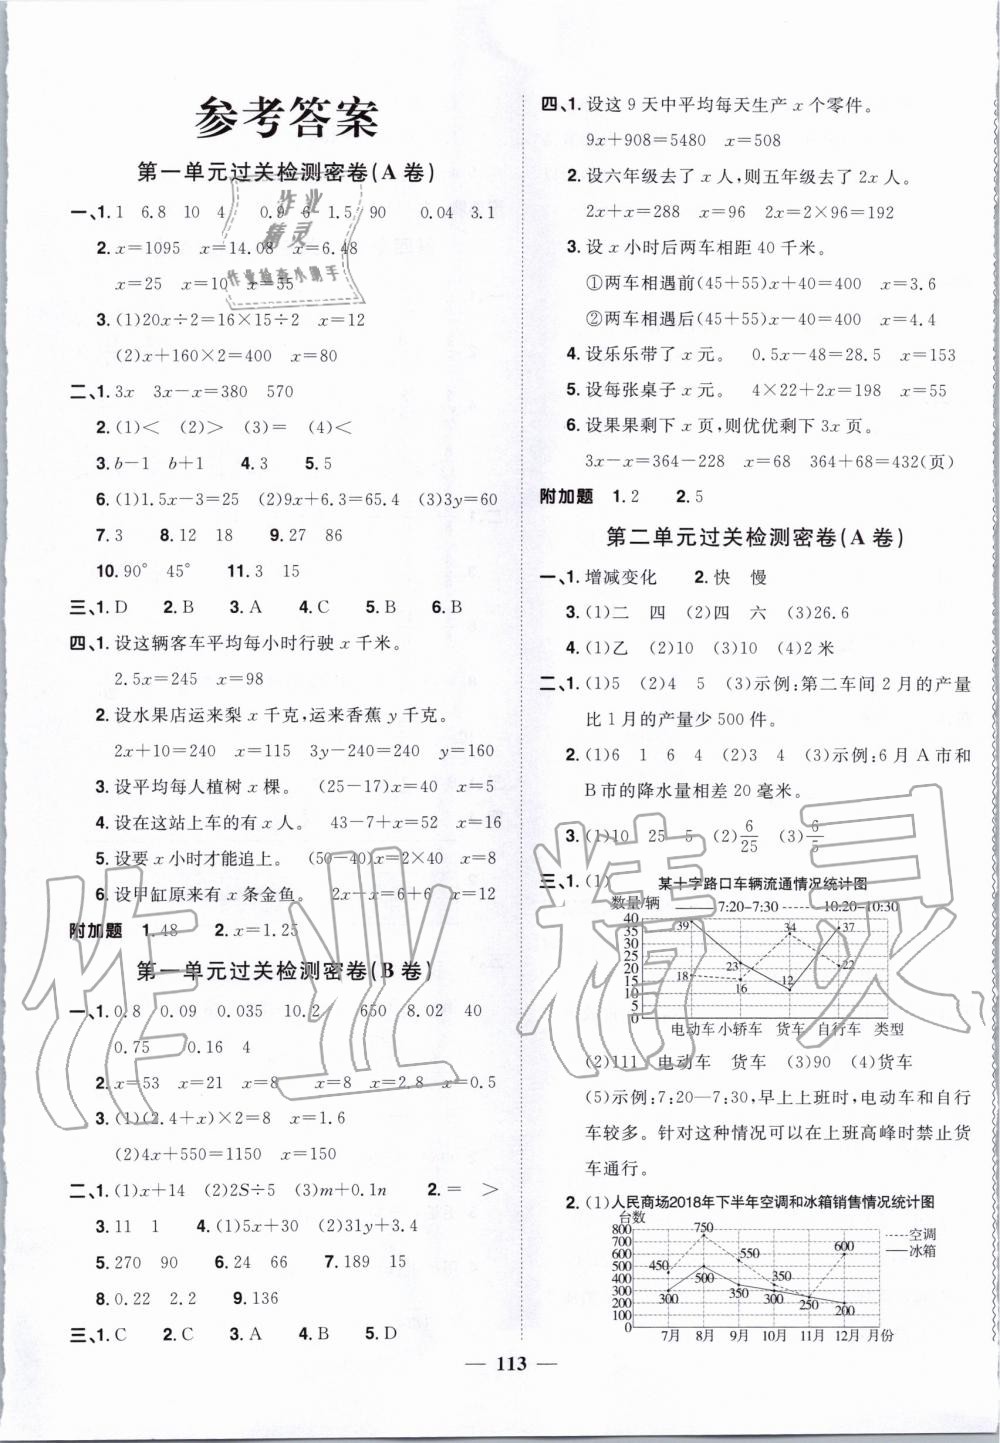 参考答案
第一单元过关检测密卷(A卷)
一、1. 1 6.8 10 4 0.9 6 1.5 90 0.04 3.1
2. x=1095 x=14.08 x=6.48
x=25 x=10 x=55
3. (1)20x÷2=16×15÷2 x=12
(2)x+160×2=400 x=80
二、1. 3x 3x-x=380 570
2. (1)< (2)> (3)= (4)<
3. b-1 b+1 4. 3 5. 5
6. (1)1.5x-3=25 (2)9x+6.3=65.4 (3)3y=60
7. 3 8. 12 18 9. 27 86
10. 90° 45° 11. 3 15
三、1. D 2. B 3. A 4. C 5. B 6. B
四、1. 设这辆客车平均每小时行驶 x 千米。
2.5x=245 x=98
2. 设水果店运来梨 x 千克,运来香蕉 y 千克。
2x+10=240 x=115 3y-240=240 y=160
3. 设平均每人植树 x 棵。 (25-17)x=400 x=50
4. 设在这站上车的有 x 人。 43-7+x=52 x=16
5. 设要 x 小时才能追上。 (50-40)x=80 x=8
6. 设甲缸原来有 x 条金鱼。 2x-x=6+6 x=12
附加题 1. 48 2. x=1.25
第一单元过关检测密卷(B卷)
一、1. 0.8 0.09 0.035 10.2 650 8.02 40
0.75 0.16 4
2. x=53 x=21 x=8 x=8 x=2.8 x=0.5
3. (1)(2.4+x)×2=8 x=1.6
(2)4x+550=1150 x=150
二、1. (1)x+14 (2)2S÷5 (3)m+0.1n 2. = >
3. 11 1 4. (1)5x+30 (2)31y+3.4
5. 270 90 6. 24 66 7. 189 15
8. 0.22 2.2 9. 136
三、1. C 2. C 3. A 4. B 5. D
四、1. 设这 9 天中平均每天生产 x 个零件。
9x+908=5480 x=508
2. 设六年级去了 x 人,则五年级去了 2x 人。
2x+x=288 x=96 2x=2×96=192
3. 设 x 小时后两车相距 40 千米。
①两车相遇前(45+55)x+40=400 x=3.6
②两车相遇后(45+55)x-40=400 x=4.4
4. 设乐乐带了 x 元。 0.5x-48=28.5 x=153
5. 设每张桌子 x 元。 4×22+2x=198 x=55
6. 设果果剩下 x 页,则优优剩下 3x 页。
3x-x=364-228 x=68 364+68=432(页)
附加题 1. 2 2. 5
第二单元过关检测密卷(A卷)
一、1. 增减变化 2. 快 慢
3. (1)二 四 (2)四 六 (3)26.6
4. (1)乙 (2)10 (3)10 (4)2米
二、1. (1)5 (2)4 5 (3)示例:第二车间 2 月的产量
比 1 月的产量少 500 件。
2. (1)6 1 6 4 (2)3 4 (3)示例:6 月 A 市和
B 市的降水量相差 20 毫米。
3. (1)10 25 5 (2)6/25 (3)6/5
三、1. (1) 某十字路口车辆流通情况统计图
数量/辆 7:20-7:30 10:20-10:30
40
35
30
25
20
15
10
5
0
39 18 23 16 34 12 37 22
电动车 小轿车 货车 自行车 类型
(2)111 电动车 货车 (3)90 (4)货车
(5)示例:7:20—7:30,早上上班时,电动车和自行
车较多。针对这种情况可以在上班高峰时禁止货
车通行。
2. (1)人民商场2018年下半年空调和冰箱销售情况统计图
台数
空调
冰箱
800
700
600
500
400
300
200
100
0
450 300 750 500 550 350 350 300 250 600 200
7月 8月 9月 10月 11月 12月 月份
113
作业精灵
作业
精灵
作业检查小助手